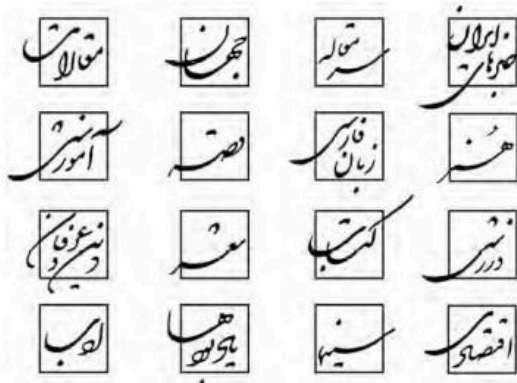 خبرهای ایران
سر مقاله
جهان
مقالات
هنر
زبان فارسی
قصه
آموزشی
ورزشی
کتاب
شعر
دین و عرفان
اقتصادی
سینما
یادبودها